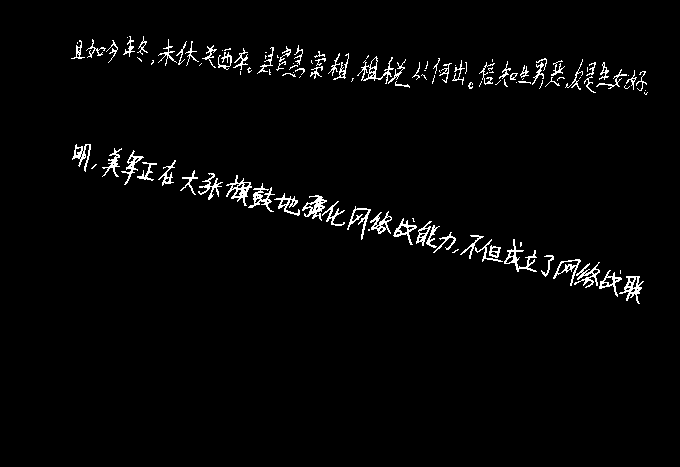 且如今年冬，未休关西卒。县官急索租，租税从何出。信知生男恶，反是生女好。
明，美军正在大张旗鼓地强化网络战能力，不但成立了网络战联